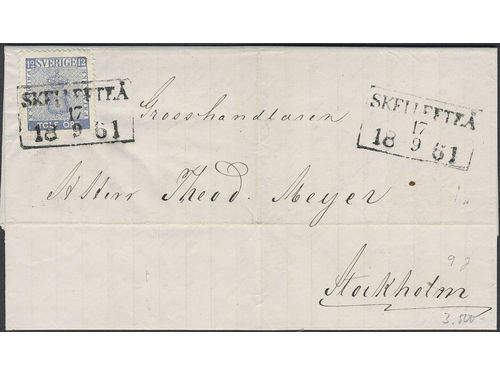 12 SVERIGE 12
TOLF ÖRE
SKELLEFTEÅ
17
18 9 61
SKELLEFTEÅ
17
18 9 61
Grosshandlaren
Theod. Meyer
Stockholm
3.500-